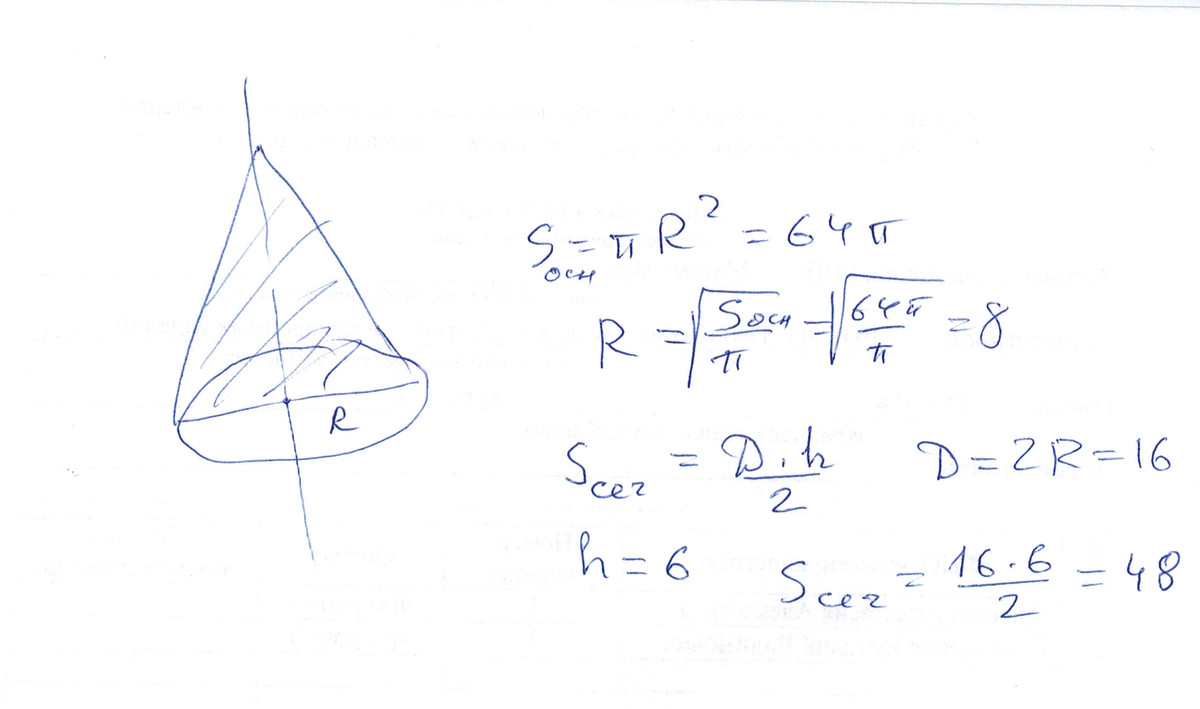 R
Sосн = πR² = 64π
R = √(Sосн/π) = √(64π/π) = 8
Sсеч = D·h/2 D = 2R = 16
h = 6 Sсеч = 16·6/2 = 48